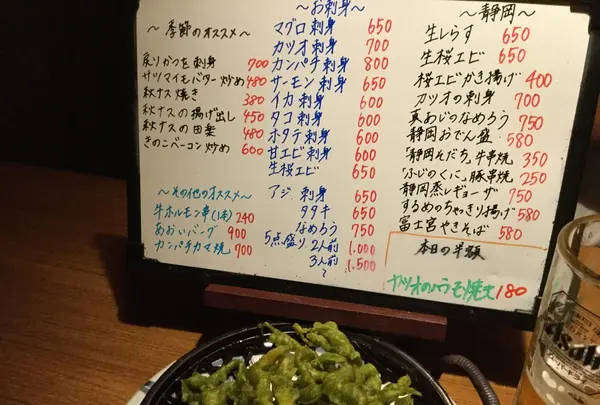 ～季節のオススメ～
戻りかつお刺身 700
サツマイモバター炒め 480
秋ナス焼き 380
秋ナスの揚げ出し 450
秋ナスの田楽 480
きのこベーコン炒め 600
～その他のオススメ～
牛ホルモン串(1本) 240
あおいバーグ 900
カンパチカマ焼 700
～お刺身～
マグロ刺身 650
カツオ刺身 700
カンパチ刺身 800
サーモン刺身 650
イカ刺身 600
タコ刺身 600
ホタテ刺身 600
甘エビ刺身 600
生桜エビ 650
アジ刺身 650
タタキ 650
なめろう 750
5点盛り 2人前 1,000
3人前 1,500
～静岡～
生しらす 650
生桜エビ 650
桜エビかき揚げ 400
カツオの刺身 700
真あじのなめろう 750
静岡おでん盛 580
「静岡そだち」牛串焼 350
「ふじのくに」豚串焼 250
静岡蒸しギョーザ 750
するめのちゃきり揚げ 580
富士宮やきそば 580
本日の半額
カツオのハラモ焼き 180
Asahi